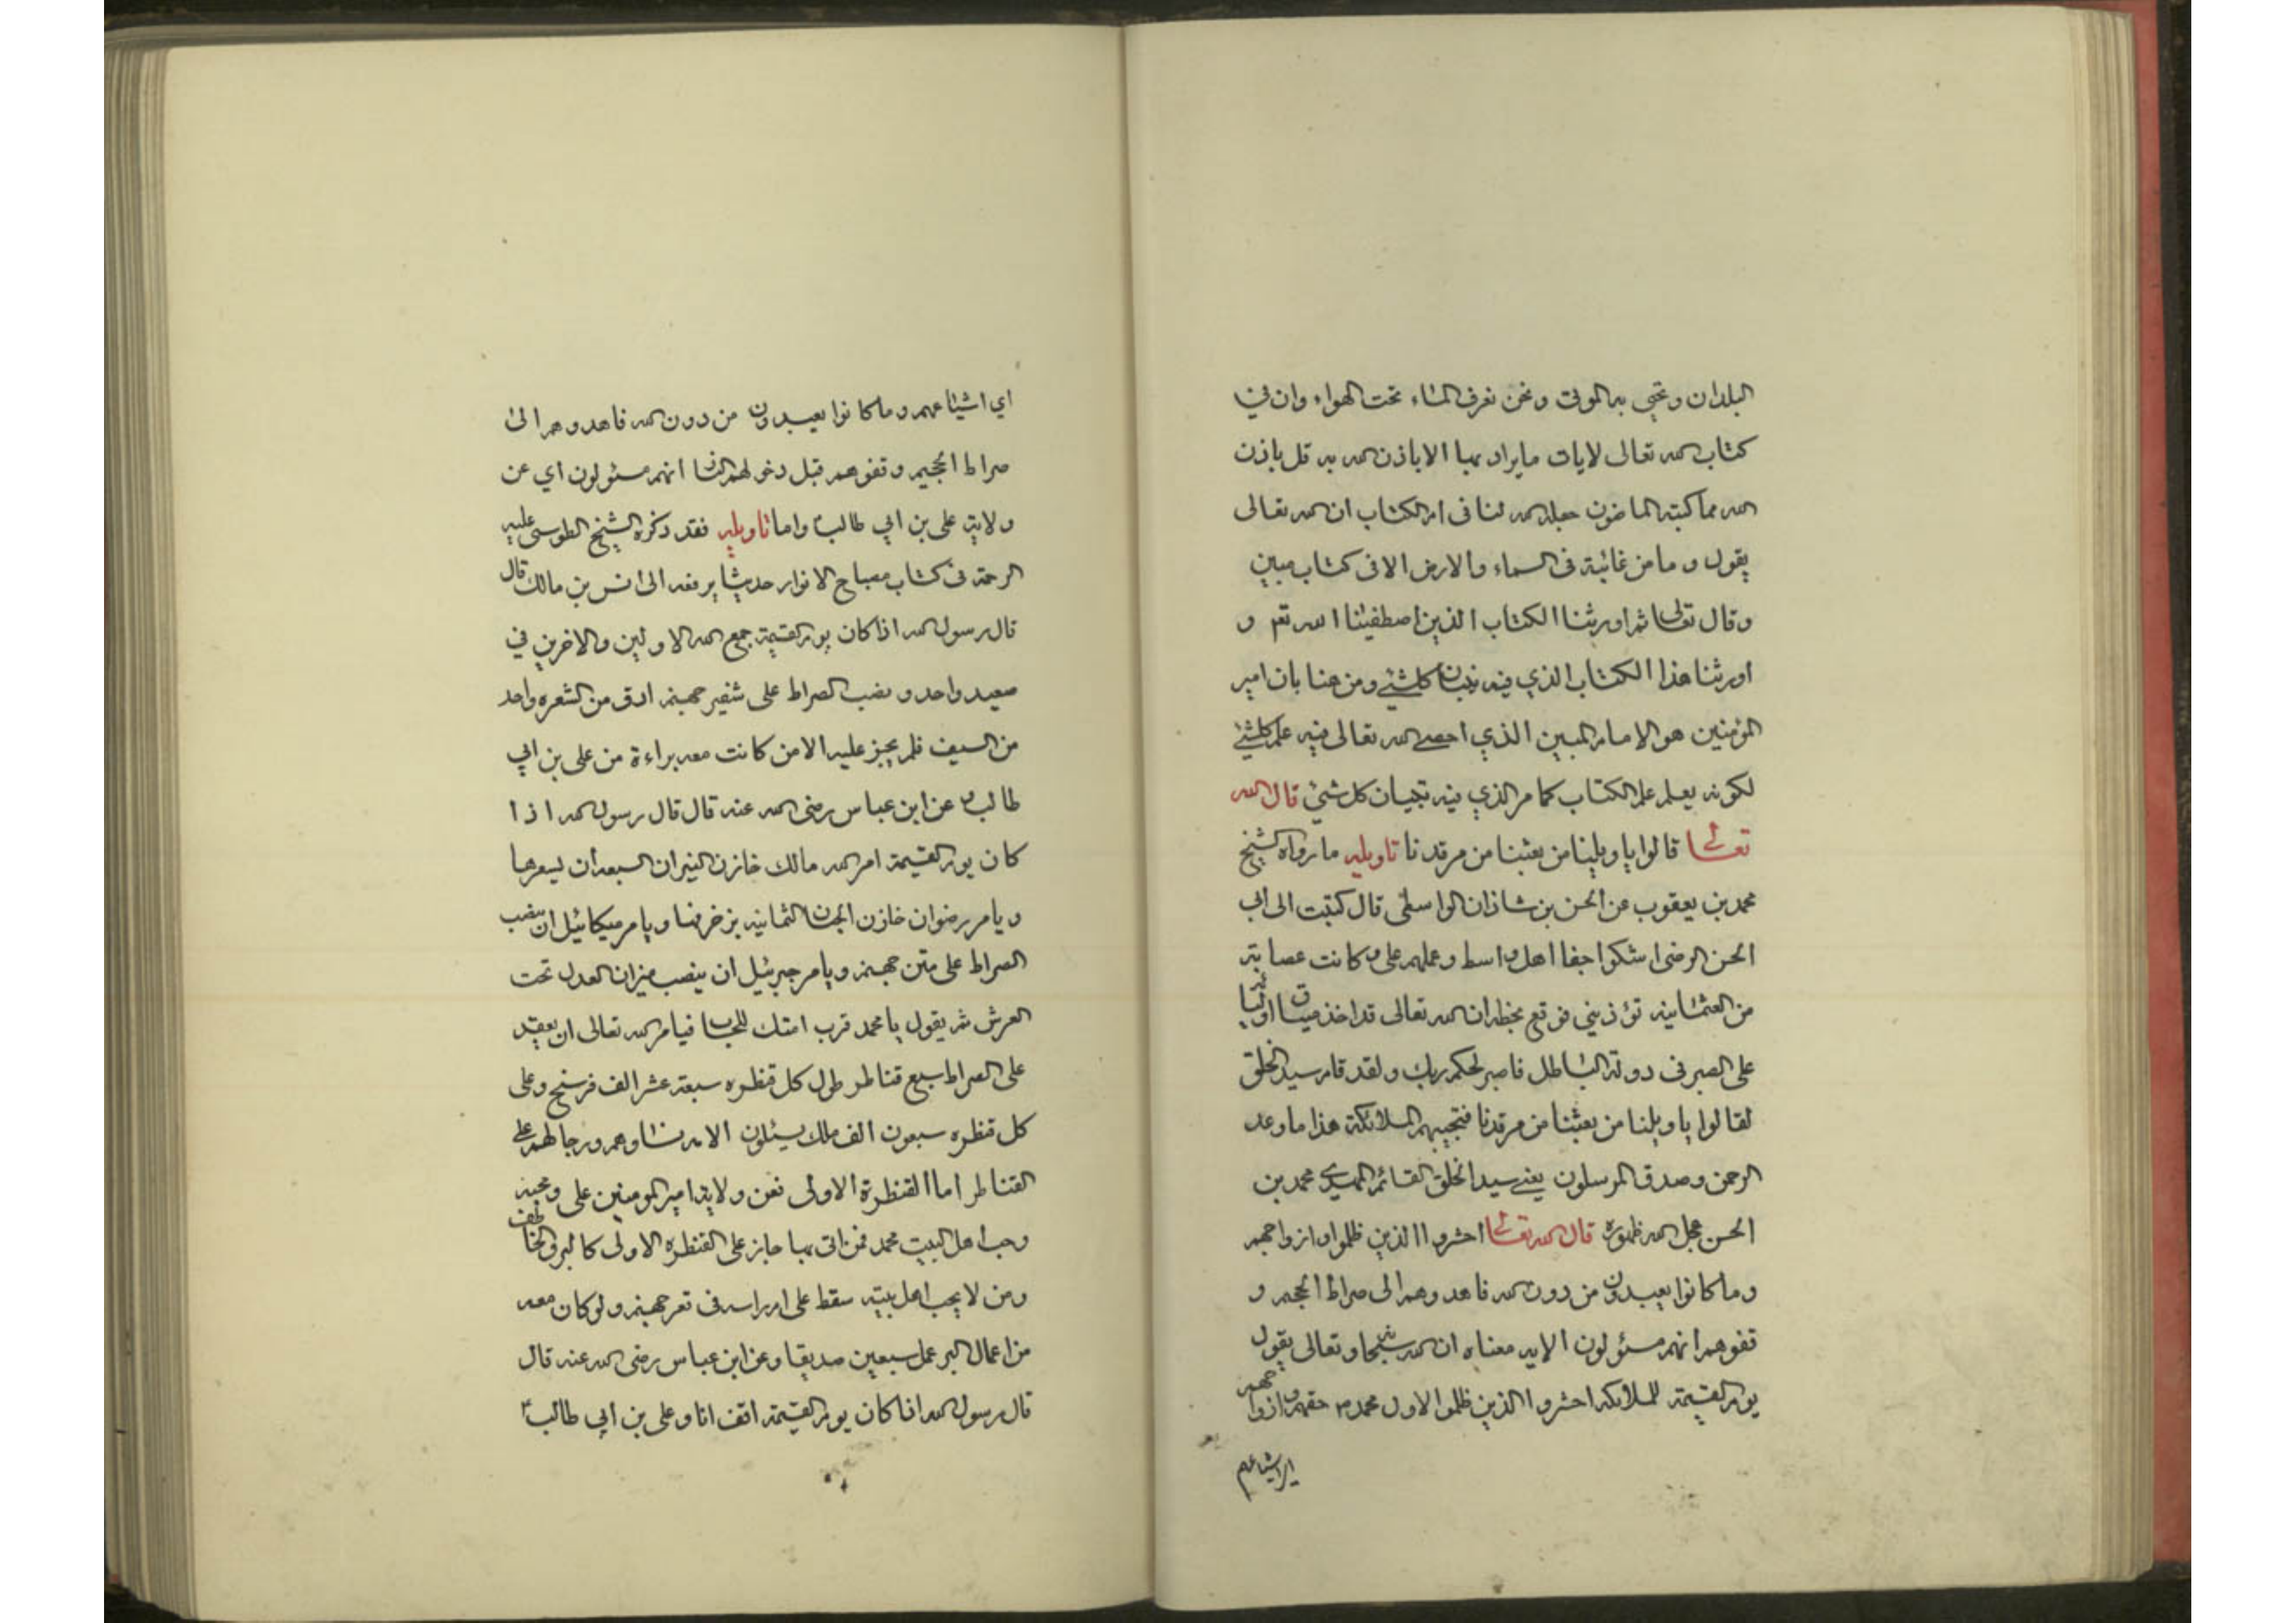 البلدان وتحيي به الموتى ونحن نعرف الماء تحت الهواء وان في
كتاب الله تعالى لايات ما يراد بها الا باذن الله به قل باذن
الله مما كتبه الماضون جعله الله لنا في ام الكتاب ان الله تعالى
يقول وما من غائبة في السماء والارض الا في كتاب مبين
وقال تعالى ثم اورثنا الكتاب الذين اصطفينا الله تعم و
اورثنا هذا الكتاب الذي فيه تبيان كلشئ ومن هنا بان امير
المؤمنين هو الامام المبين الذي احصى الله تعالى فيه علم كلشئ
لكونه يعلم علم الكتاب كما مر الذي فيه تبيان كل شئ قال الله
تعالى قالوا يا ويلينا من بعثنا من مرقدنا تاويله ما رواه الشيخ
محمد بن يعقوب عن الحسن بن شاذان الواسطى قال كتبت الى ابى
الحسن الرضى اشكوا جفا اهل واسط وعلهم على وكانت عصابة
من العثمانيه تؤذيني فوقع بخطه ان الله تعالى قد اخذ ميثاق اوليائه
على الصبر فى دولة الباطل فاصبر لحكم ربك ولقد قام سيد الخلق
لقالوا يا ويلنا من بعثنا من مرقدنا فتجيبهم الملائكة هذا ما وعد
الرحمن وصدق المرسلون يعنى سيد الخلق القائم المهدى محمد بن
الحسن عجل الله ظهوره قال الله تعالى احشروا الذين ظلموا وازواجهم
وما كانوا يعبدون من دون الله فاهدوهم الى صراط الجحيم و
قفوهم انهم مسئولون الايه معناه ان الله سبحانه وتعالى يقول
يوم القيمة للملائكه احشروا الذين ظلموا الاول محمد حقهم وازواجهم
اى اشياعهم
اي اشياعهم وما كانوا يعبدون من دون الله فاهدوهم الى
صراط الجحيم وقفوهم قبل دخولهم النار انهم مسئولون اي عن
ولاية على بن ابي طالب واما تاويله فقد ذكره الشيخ الطوسى عليه
الرحمة فى كتاب مصباح الانوار حديثا يرفعه الى انس بن مالك قال
قال رسول الله اذا كان يوم القيمة جمع الله الاولين والاخرين في
صعيد واحد ونصب الصراط على شفير جهنم ادق من الشعره واحد
من السيف فلم يجز عليه الا من كانت معه براءة من على بن ابي
طالب عن ابن عباس رضى الله عنه قال قال رسول الله اذا
كان يوم القيمة امر الله مالك خازن النيران السبعه ان يسعرها
ويامر رضوان خازن الجنان الثمانيه بزخرفها ويامر ميكائيل ان ينصب
الصراط على متن جهنم ويامر جبرئيل ان ينصب ميزان العدل تحت
العرش ثم يقول يا محمد قرب امتك للحساب فيامر الله تعالى ان يعقد
على الصراط سبع قناطر طول كل قنطره سبعة عشر الف فرسخ وعلى
كل قنطره سبعون الف ملك يسئلون الامه نساوهم ورجالهم على
القناطر اما القنطرة الاولى فعن ولاية امير المومنين على ومحبة
وحب اهل البيت محمد فمن اتى بها جاز على القنطره الاولى كالبرق الخاطف
ومن لا يحب اهل بيته سقط على ام راسه فى قعر جهنم ولو كان معه
من اعمال البر عمل سبعين صديقا وعن ابن عباس رضى الله عنه قال
قال رسول الله اذا كان يوم القيمة اقف انا وعلى بن ابي طالب